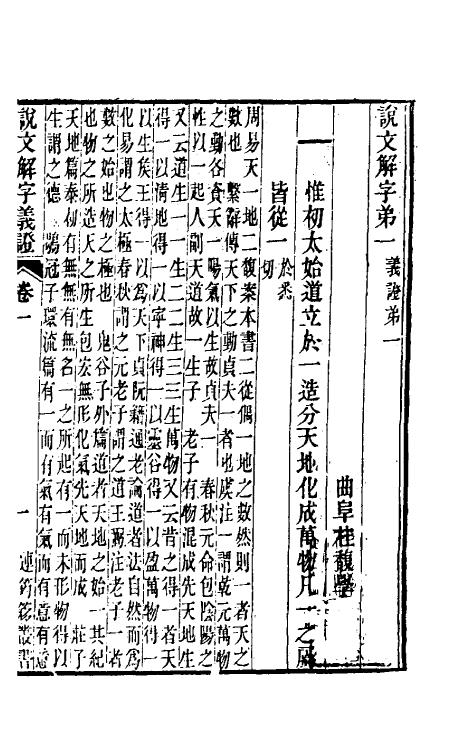 說文解字弟一　義證弟一
曲阜桂馥學
一　惟初太始道立於一造分天地化成萬物凡一之屬
皆從一　於悉切
周易天一地二馥案本書二從偶一地之數然則一者天之
數也　繫辭傳天下之動貞夫一者也虞注一謂乾元萬物
之動各資天一陽氣以生故貞夫一　春秋元命包陰陽之
性以一起人副天道故一生子　老子有物混成先天地生
又云道生一一生二二生三三生萬物又云昔之得一者天
得一以清地得一以寧神得一以靈谷得一以盈萬物得一
以生侯王得一以爲天下貞阮籍通老論道者法自然而爲
化易謂之太極春秋謂之元老子謂之道王弼注老子一者
數之始也物之極也　鬼谷子外篇道者天地之始一其紀
也物之所造天之所生包宏無形化氣先天地而成　莊子
天地篇泰初有無無有無名一之所起有一而未形物得以
生謂之德　鶡冠子環流篇有一而有氣有氣而有意有意
說文解字義證　卷一　一　連筠簃叢書